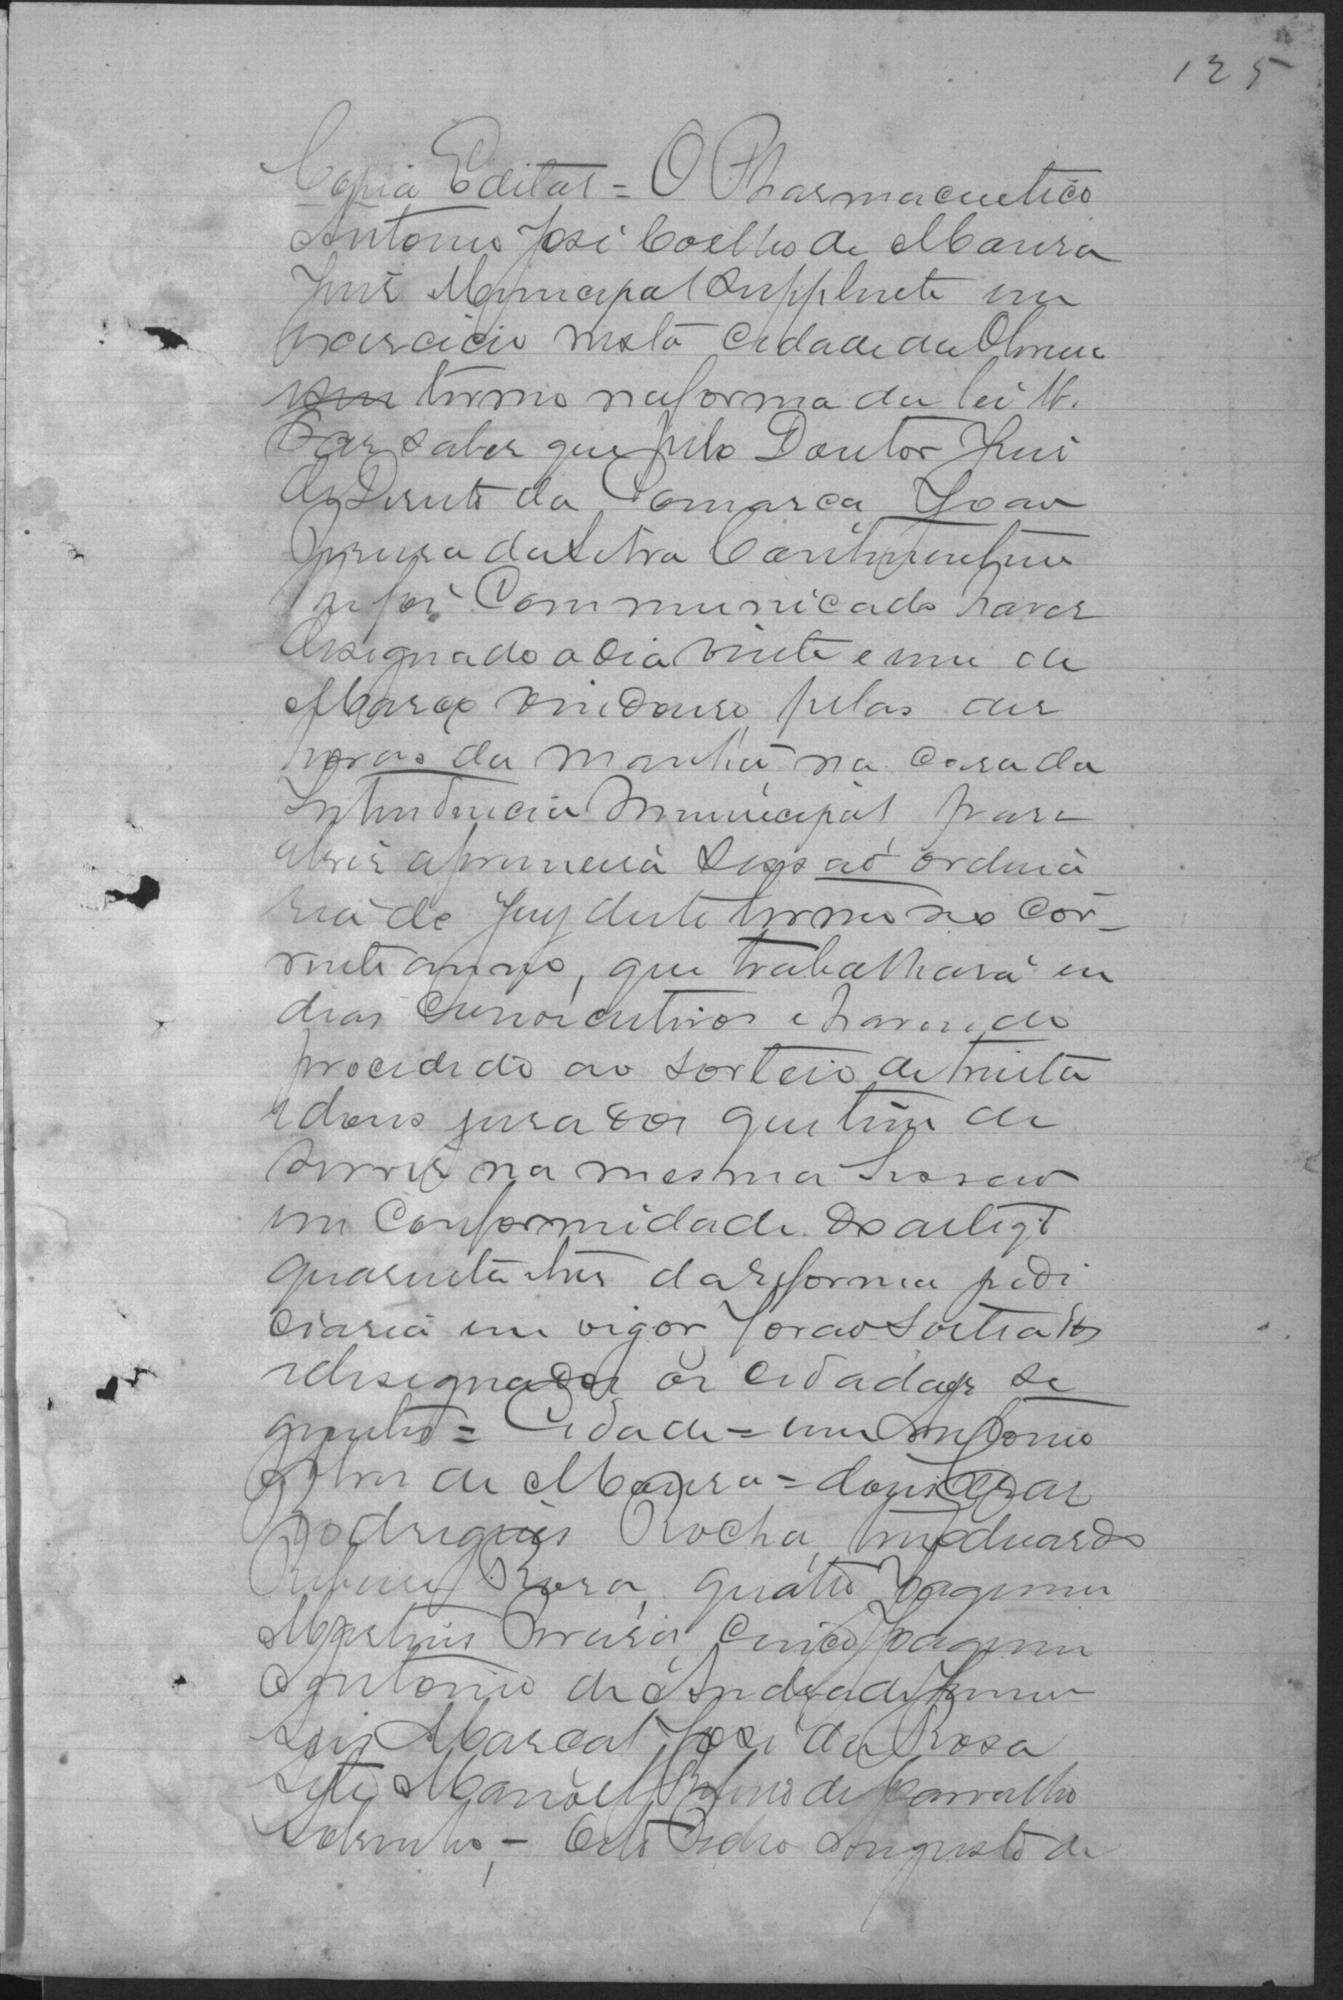 125
Copia Edital = O Pharmaceutico
Antonio José Coelho de Moura
Juis Municipal Supplente em
exercicio nesta Cidade de
termo na forma da lei &.
Faz saber que pelo Doutor Juis
de Direito da Comarca Joao
da
foi Communicado haver
designado o dia vinte e um de
Março vindouro, pelas des
horas da manhã na casa da
Intendencia Municipal, para
abrir a primeira Sessaõ ordiná
ria do Jury deste termo no cor-
rente anno, que trabalhará em
dias consecutivos e havendo
procedido ao sorteio de trinta
e dous jurados que tem de
servir na mesma Sessao
em Conformidade do artigo
quarenta tres da reforma judi
ciaria em vigor forao Sorteados
e designados os cidadaos se
guintes = Cidade = um Antonio
de Moura = dous Cesar
Rodrigues Rocha, tres Eduardo
Rosa, quatro Joaquim
Martins cinco Joaquim
Antonio de Andrade Junior
Seis Marcal José da Rosa
Sete Manoel de Carvalho
Sobrinho, - Oito Pedro Augusto de